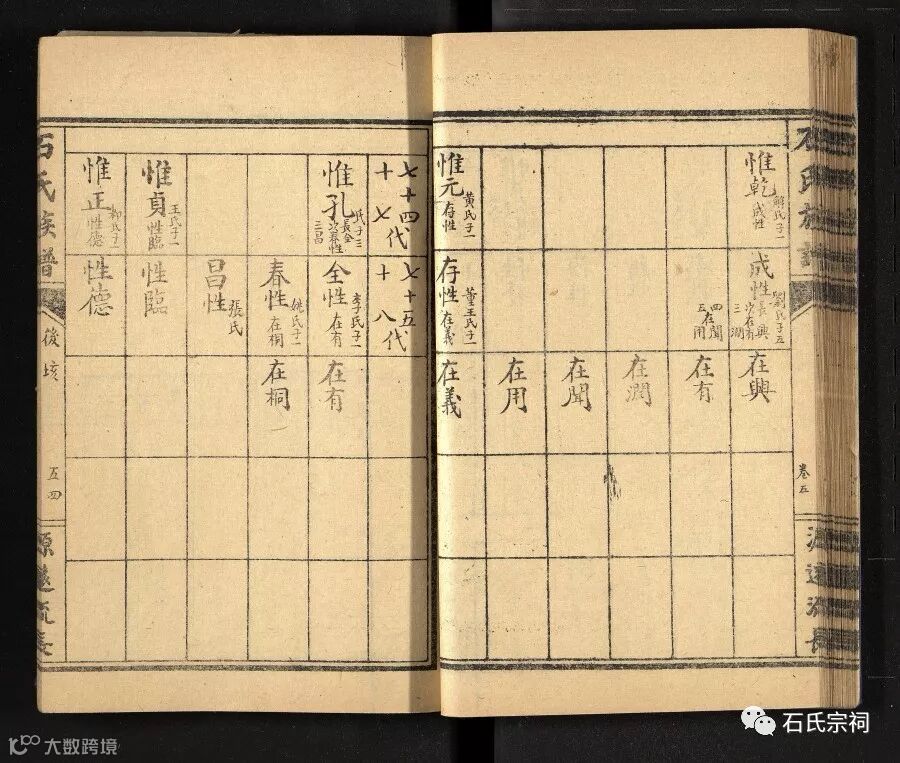 石氏族譜
卷五
源遠流長
惟乾
子一
成性
惟元
黃氏子一
存性
成性
劉氏子五
長興
次在有
三潤
四在聞
五用
存性
董王氏子一
在義
在興
在有
在潤
在聞
在用
在義
七十四代
十七
七十五代
十八
惟孔
氏子三
長全
次春性
三昌
惟貞
王氏子一
性臨
惟正
柳氏子一
性德
全性
李氏子一
在有
春性
姚氏子一
在桐
昌性
張氏
性臨
性德
在有
在桐
石氏族譜
後垓
五四
源遠流長
石氏宗祠
大数跨境